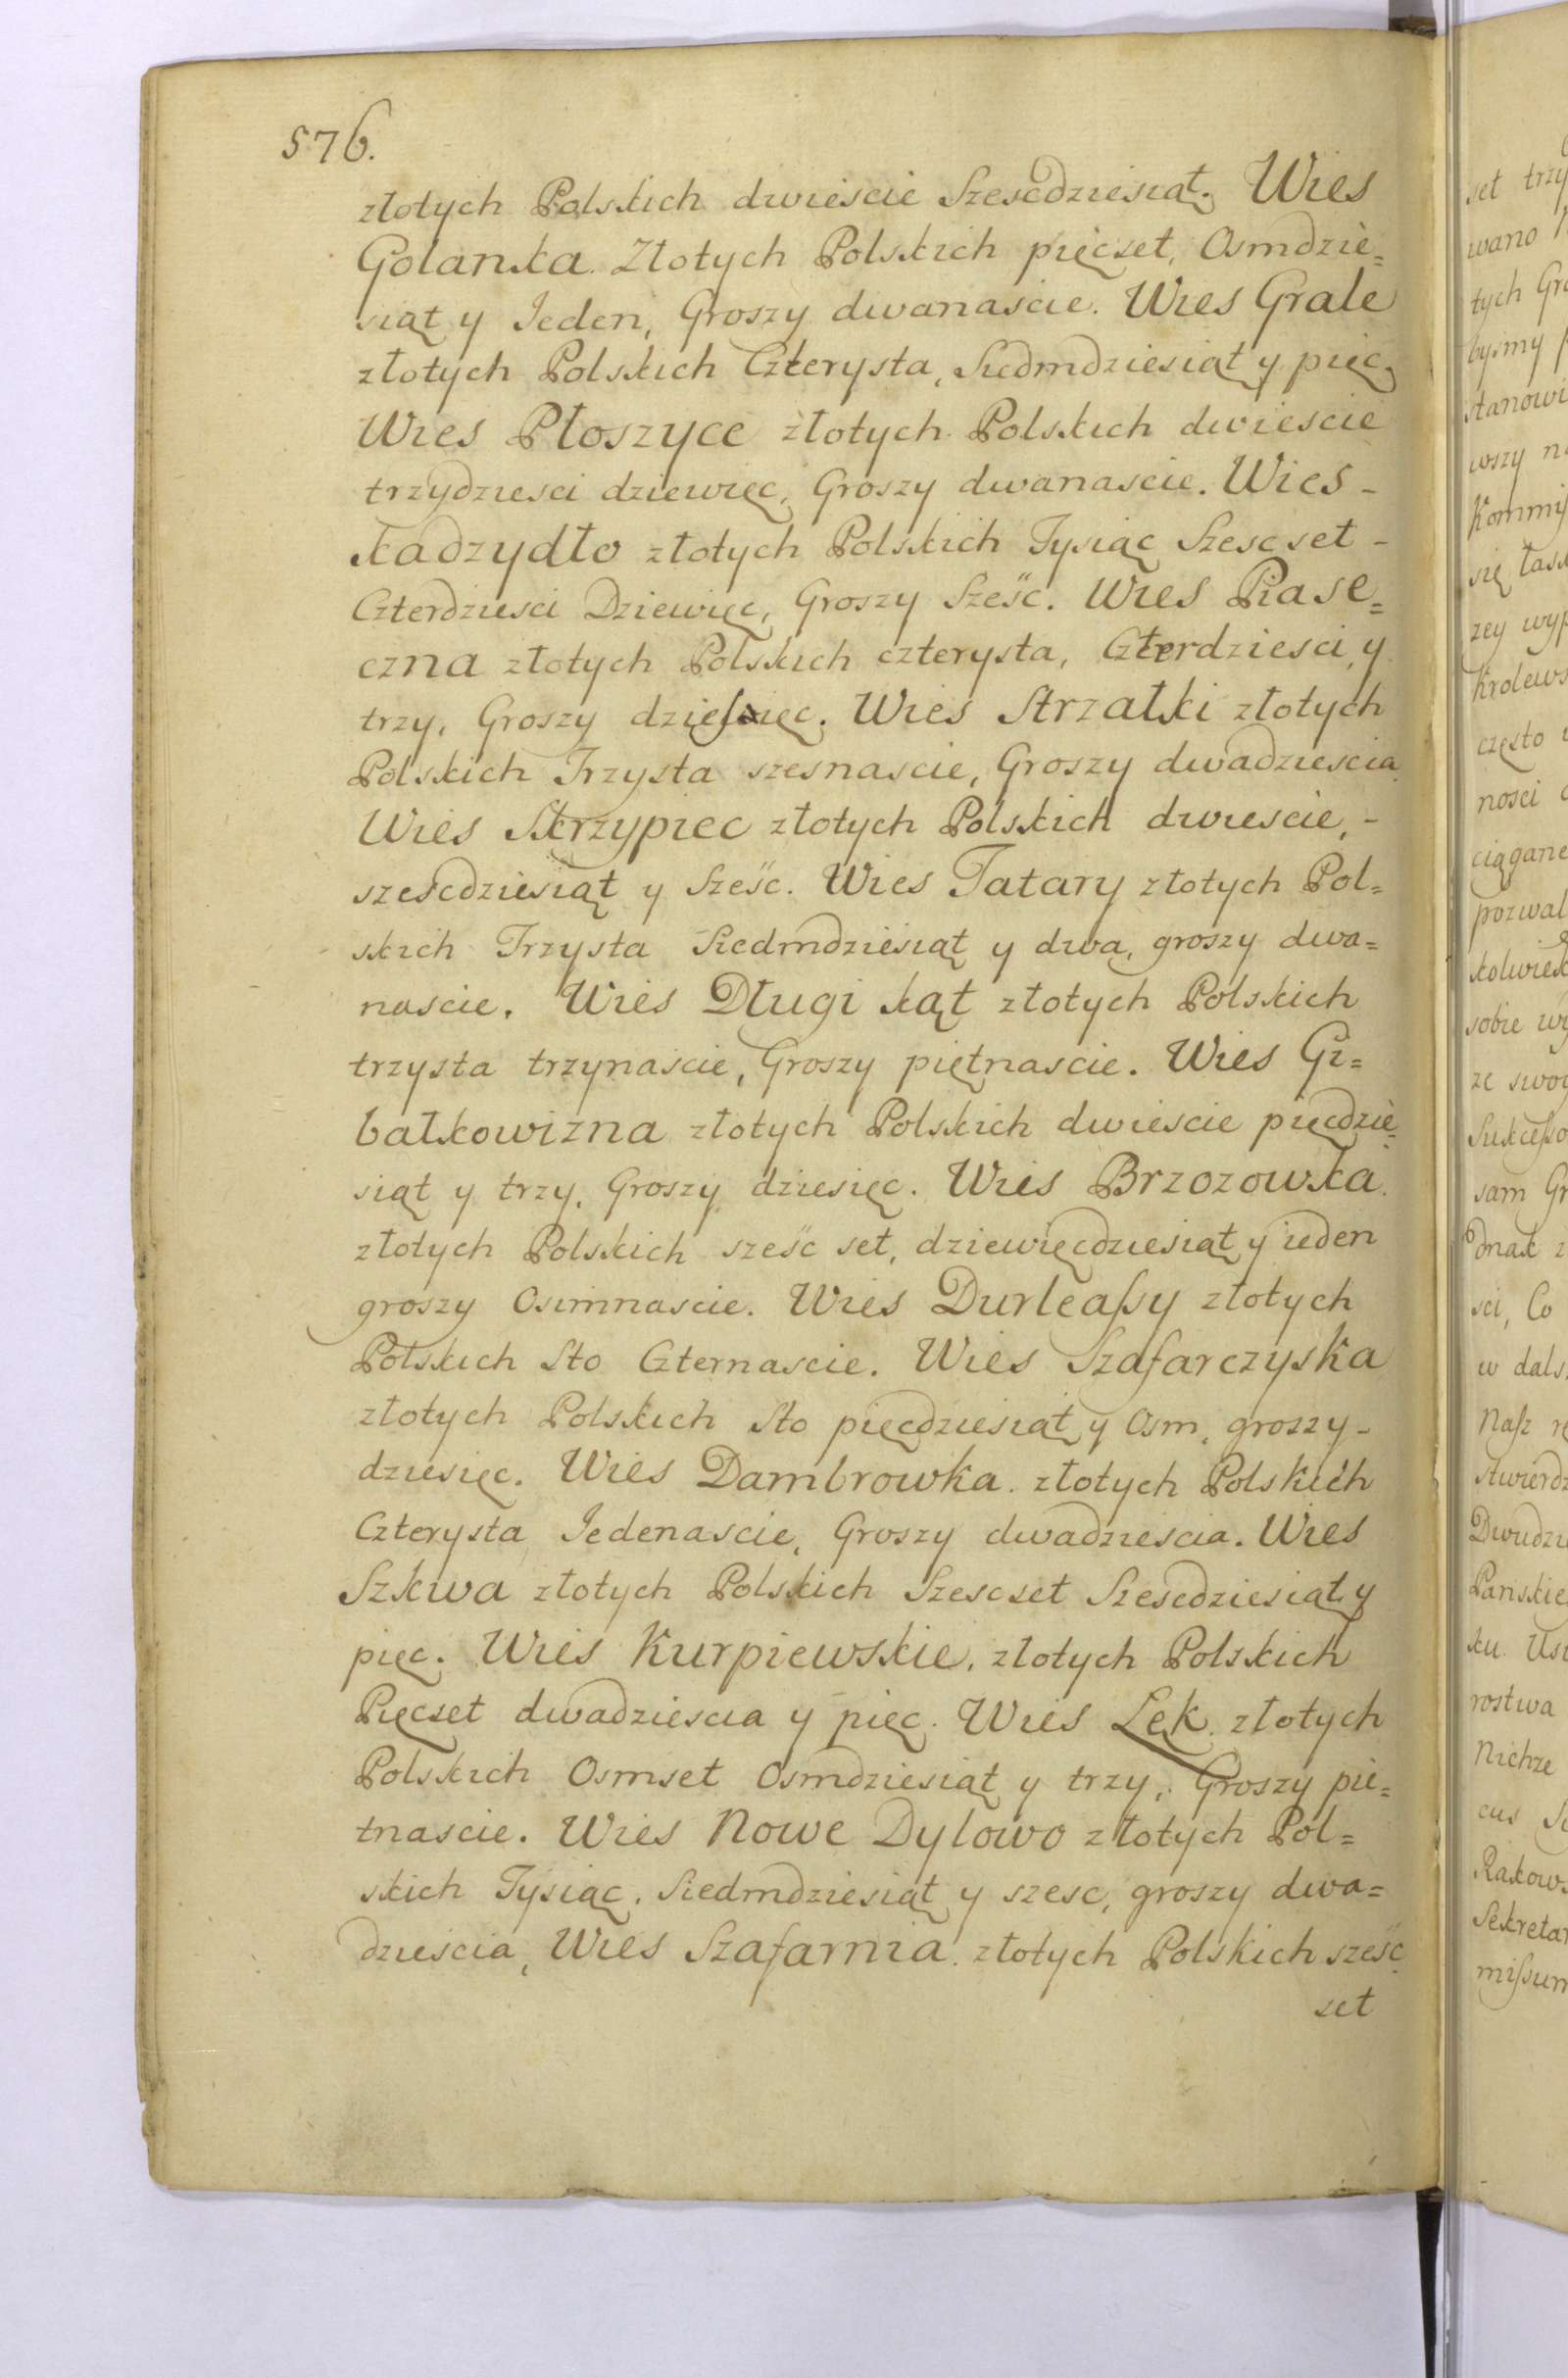 576.
złotych Polskich dwiescie Szescdziesiąt. Wies
Golanka Złotych Polskich pięcset, Osmdzie=
siąt y Jeden, Groszy dwanascie. Wies Grale
złotych Polskich Czterysta, Siedmdziesiąt y pięc,
Wies Płoszyce złotych Polskich dwiescie
trzydziesci dziewięc, Groszy dwanascie. Wies -
Kadzydło złotych Polskich Tysiąc Szescset -
Czterdziesci Dziewięc, Groszy Sześc. Wies Piase=
czna złotych Polskich czterysta, Czterdziesci, y
trzy, Groszy dziesięc. Wies Strzałki złotych
Polskich Trzysta szesnascie, Groszy dwadziescia
Wies Skrzypiec złotych Polskich dwiescie, -
szescdziesiąt y Sześc. Wies Tatary złotych Pol=
skich Trzysta Siedmdziesiąt y dwa, groszy dwa=
nascie. Wies Długi kąt złotych Polskich
trzysta trzynascie, Groszy piętnascie. Wies Gi=
bałkowizna złotych Polskich dwiescie pięcdzie=
siąt y trzy, Groszy dziesięc. Wies Brzozowka
złotych Polskich sześc set, dziewięcdziesiąt y ieden
groszy Osimnascie. Wies Durleaſsy złotych
Polskich Sto Czternascie. Wies Szafarczyska
złotych Polskich Sto pięcdziesiąt y Osm, groszy -
dziesięc. Wies Dambrowka złotych Polskich
Czterysta Jedenascie, Groszy dwadziescia. Wies
Szkwa złotych Polskich Szescset Szescdziesiąt y
pięc. Wies Kurpiewskie, złotych Polskich
Pięcset dwadziescia y pięc. Wies Lęk złotych
Polskich Osmset Osmdziesiąt y trzy, Groszy pie=
tnascie. Wies Nowe Dylowo złotych Pol=
skich Tysiąc, Siedmdziesiąt y szesc, groszy dwa=
dziescia, Wies Szafarnia złotych Polskich sześc
set
set trzy
wano
tych Gro
byśmy
stanowi
wszy na
Kommiſ
się łask
zey wyp
Krolews
często
nosci
ciągane
pozwal
kolwiek
sobie wy
ze swoy
Sukceſso
sam Gr
dnak z
sci, Co
w dals
Naſz rę
stwierdz
Dwudzie
Panskie
ku
rostwa
Nichze
cus
Rakow
Sekretar
miſsum